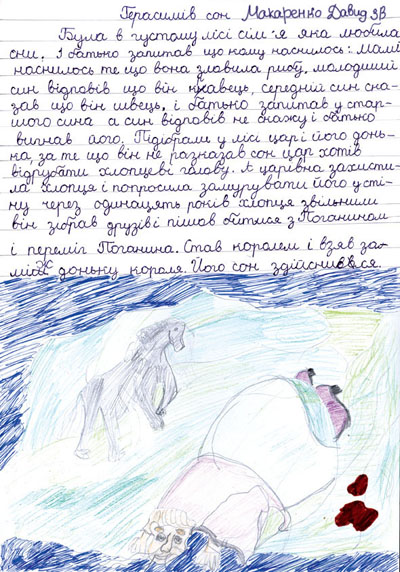 Герасимів сон Макаренко Давид 3В
Була в густому лісі сім'я яка любила
сни. І батько запитав що кому наснилось: мамі
наснилось те що вона зловила рибу, молодший
син відповів що він кравець, середній син ска-
зав що він швець, і батько запитав у стар-
шого сина а син відповів не скажу і батько
вигнав його. Підібрали у лісі цар і його донь-
ка, за те що він не разказав сон цар хотів
відрубти хлопцеві галаву. А царівна захисти-
ла хлопця і попросила замурувати його у сті-
ну через одинацять років хлопця звільнили
він зібрав друзів і пішов битися з Поганином
і переміг Поганина. Став королем і взяв за-
між доньку короля. Його сон здійснився.